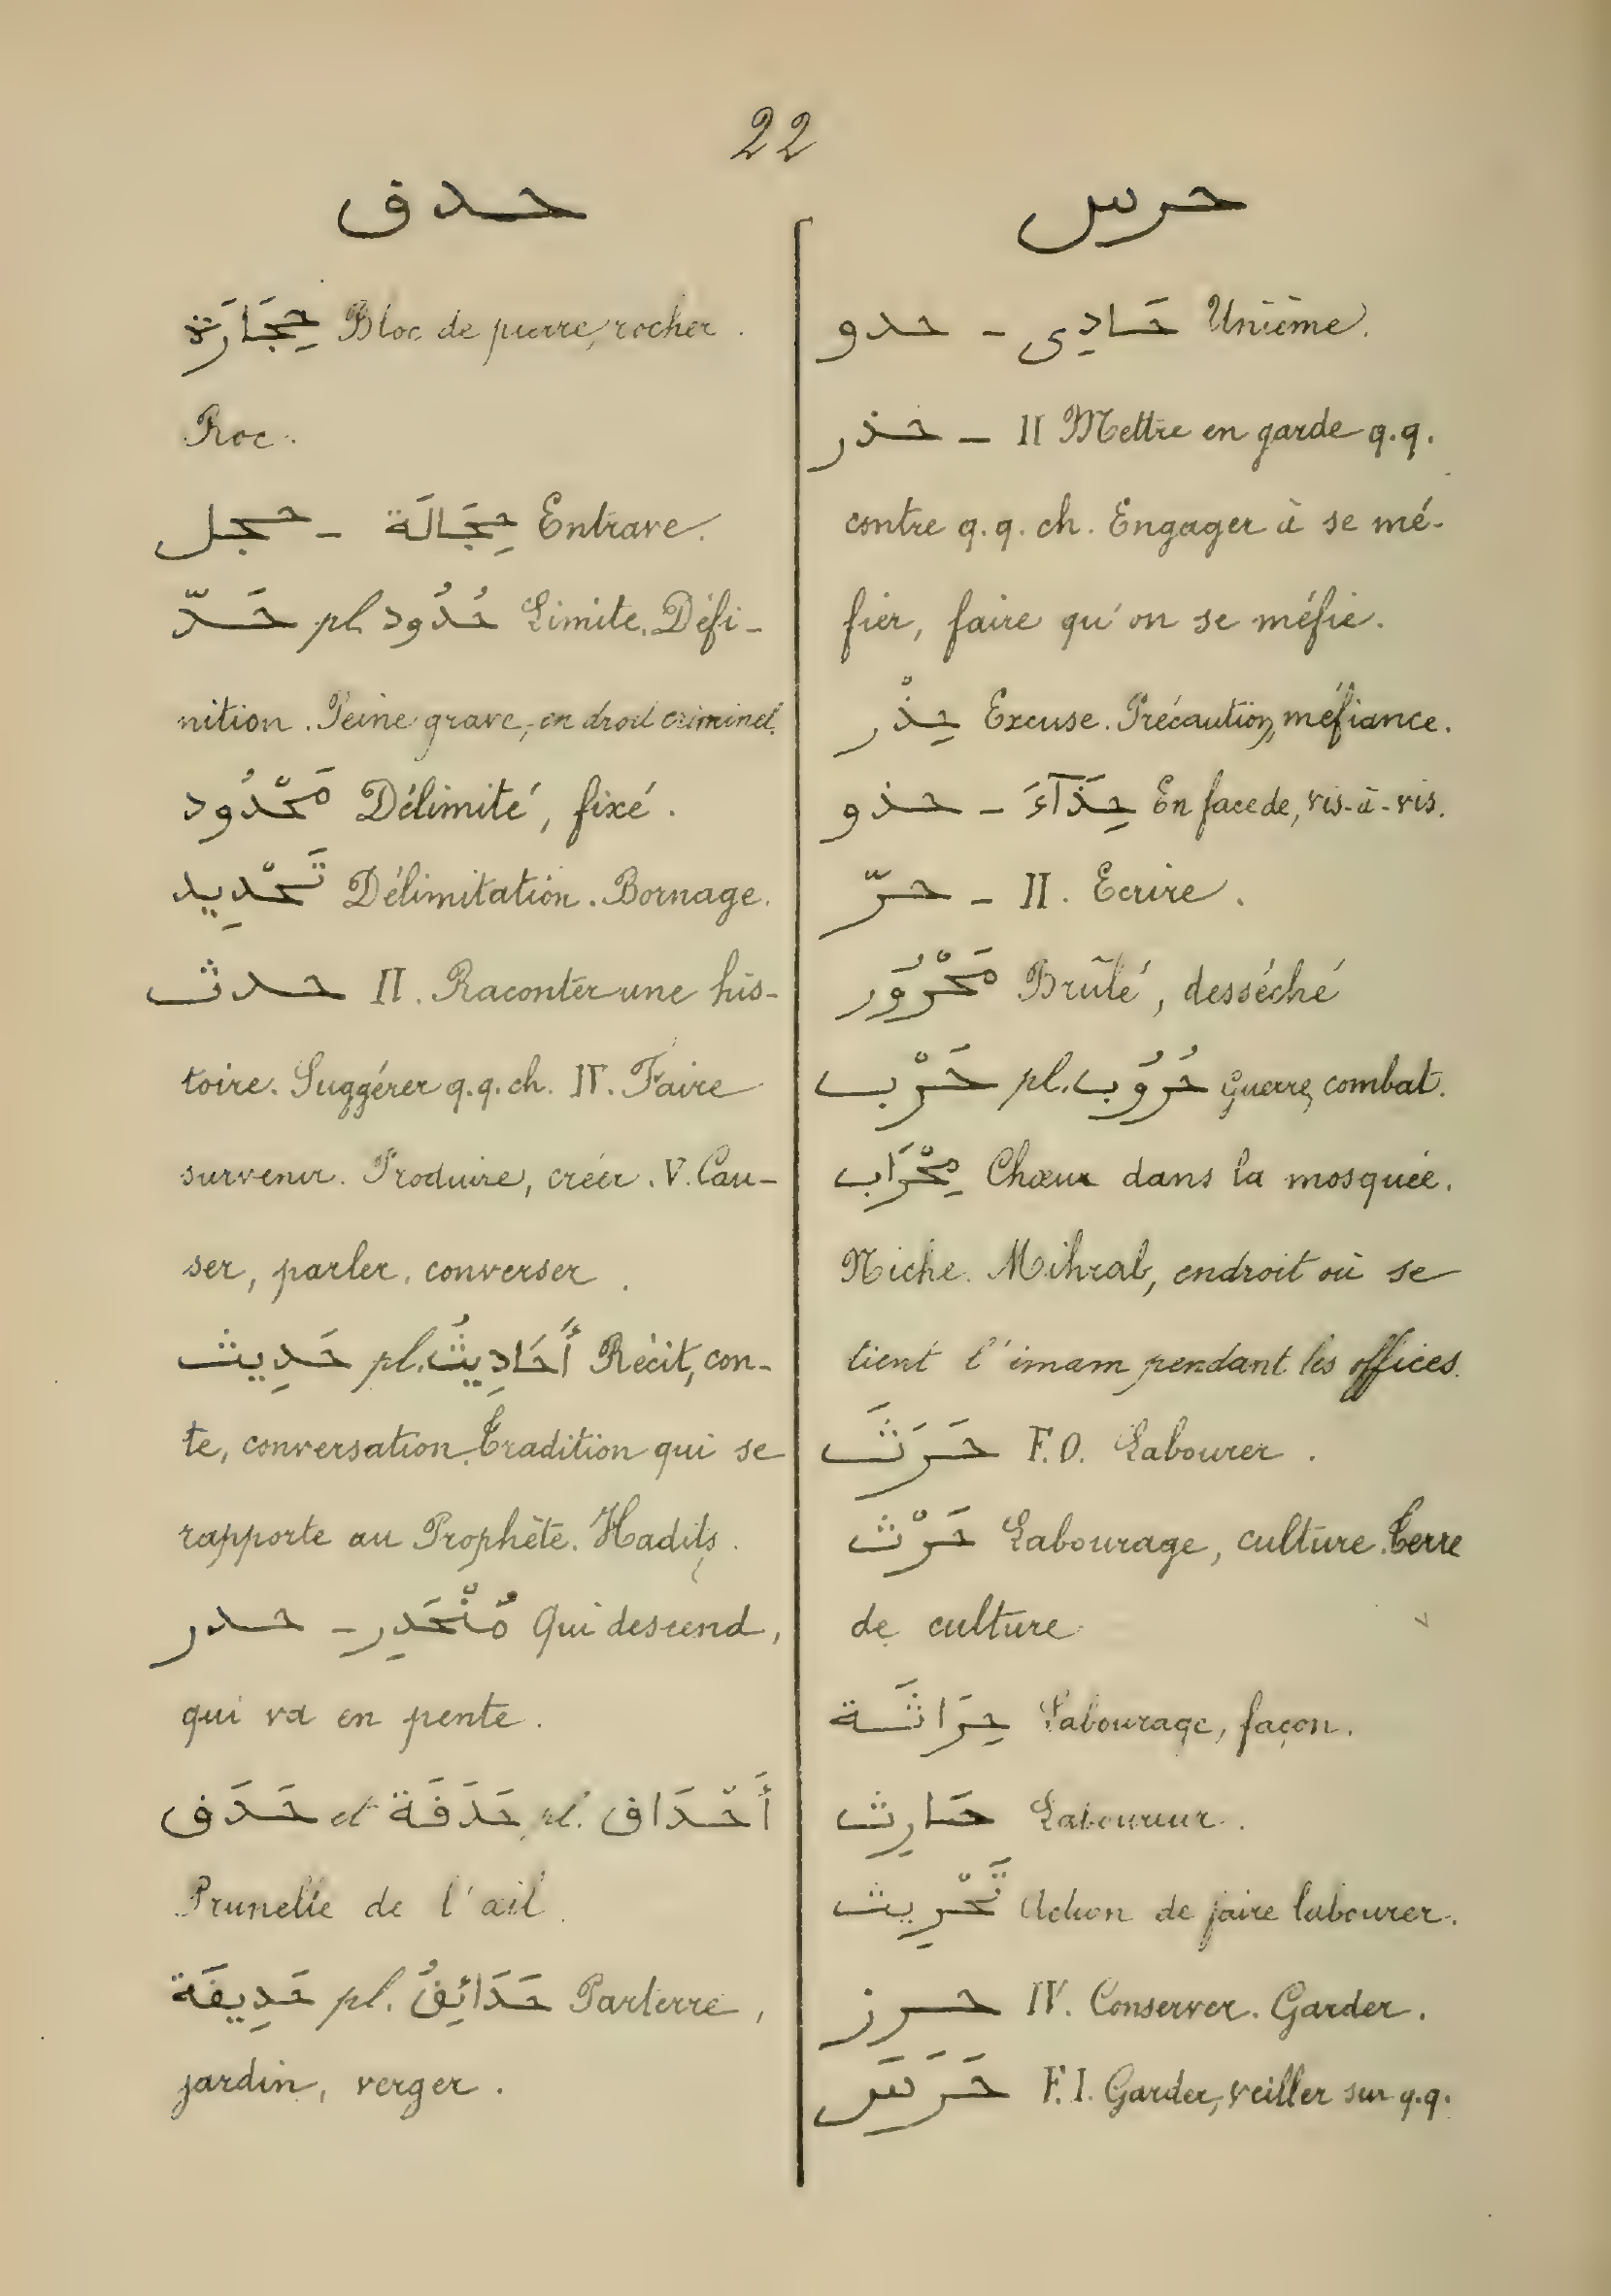 22
حدق
حِجَارَة Bloc de pierre, rocher.
Roc.
حجل - حِجَالَة Entrave.
حَدّ pl. حُدُود Limite. Défi-
nition. Peine grave, en droit criminel.
مَحْدُود Délimité, fixé.
تَحْدِيد Délimitation. Bornage.
حدث II. Raconter une his-
toire. Suggérer q.q.ch. IV. Faire
survenir. Produire, créer. V. Cau-
ser, parler, converser.
حَدِيث pl. أَحَادِيثُ Récit, con-
te, conversation. Tradition qui se
rapporte au Prophète. Hadits.
حدر - مُنْحَدِر Qui descend,
qui va en pente.
حَدَق et حَدَقَة pl. أَحْدَاق
Prunelle de l'œil.
حَدِيقَة pl. حَدَائِقُ Parterre,
jardin, verger.
حرس
حدو - حَادِى Unième.
حذر - II Mettre en garde q.q.
contre q.q.ch. Engager à se mé-
fier, faire qu'on se méfie.
حِذْر Excuse. Précaution, méfiance.
حذو - حِذَآءَ En face de, vis-à-vis.
حرّ - II. Ecrire.
مَحْرُور Brûlé, desséché
حَرْب pl. حُرُوب Guerre, combat.
مِحْرَاب Chœur dans la mosquée.
Niche. Mihrab, endroit où se
tient l'imam pendant les offices.
حَرَثَ F.O. Labourer.
حَرْث Labourage, culture. Terre
de culture
حِرَاثَة Labourage, façon.
حَارِث Laboureur.
تَحْرِيث Action de faire labourer.
حرز IV. Conserver. Garder.
حَرَسَ F.I. Garder, veiller sur q.q.